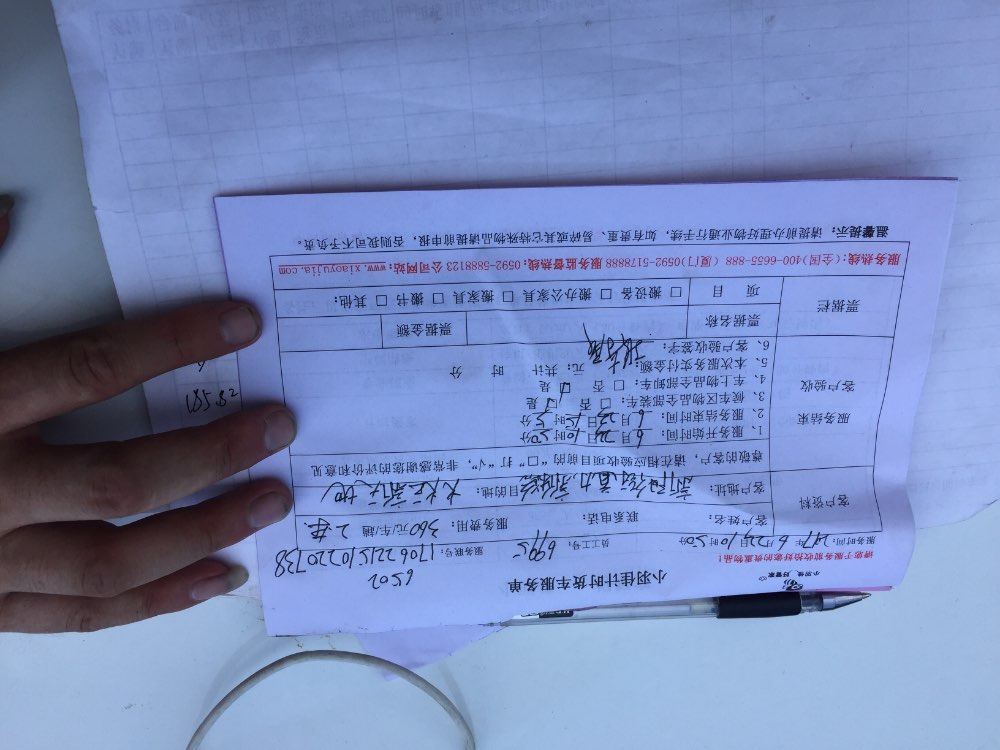 小羽佳 好管家
小羽佳计时货车服务单
6502
请您于服务前收拾好您的贵重物品!
服务时间: 2017年6月24日10时50分 员工工号: 6995 服务联号: 1706221510220738
客户资料
客户姓名: 联系电话: 服务费用: 360元/车/趟 2车
客户地址: 目的地:
尊敬的客户,请在相应验收项目前的“□”打“√”,非常感谢您的评价和意见
服务结束
客户验收
1、服务开始时间: 6月24日10时50分
2、服务结束时间: 6月24日15时5分
3、候车区物品全部装车: □ 否 □ 是
4、车上物品全部卸车: □ 否 □ 是
5、本次服务实付金额: 元; 共计 时 分
6、客户验收签字:
票据栏
票据名称 票据金额
项 目 □ 搬设备 □ 搬办公家具 □ 搬家具 □ 搬书 □ 其他:
服务热线:(全国)400-6655-888 (厦门)0592-5178888 服务监督热线: 0592-5888123 公司网站: www.xiaoyujia.com
温馨提示: 请提前办理好物业通行手续, 如有贵重、易碎或其它特殊物品请提前申报, 否则我司不予负责。